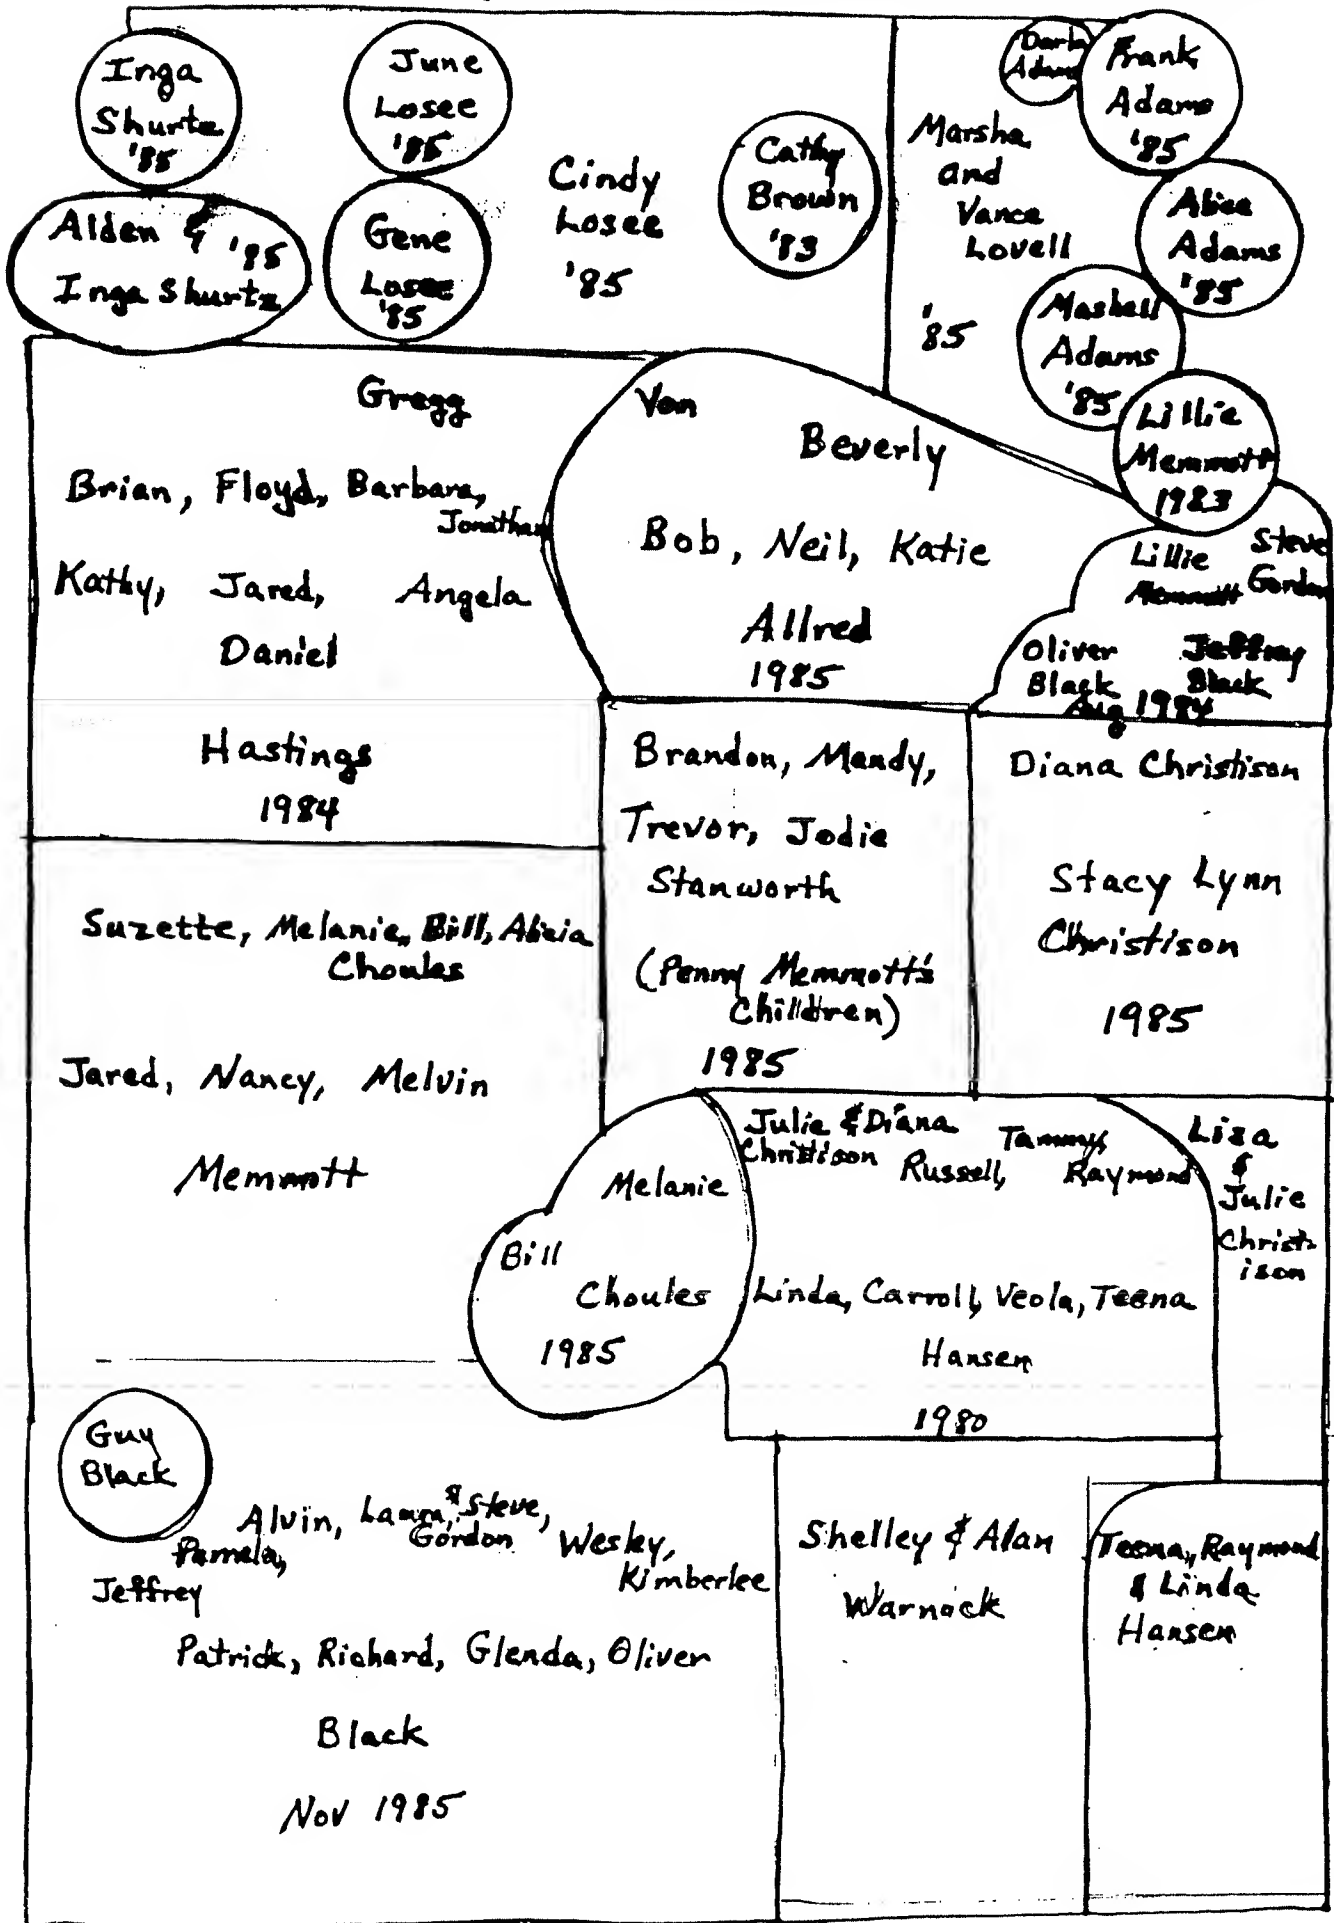 Inga
Shurtz
'85
Alden & '85
Inga Shurtz
June
Losee
'85
Gene
Losee
'85
Cindy
Losee
'85
Cathy
Brown
'83
Marsha
and
Vance
Lovell
'85
Darla
Adams
Frank
Adams
'85
Alice
Adams
'85
Mashell
Adams
'85
Lillie
Memmott
1983
Gregg
Brian, Floyd, Barbara,
Jonathan
Kathy, Jared, Angela
Daniel
Hastings
1984
Von
Beverly
Bob, Neil, Katie
Allred
1985
Lillie
Memmott
Steve
Gordon
Oliver
Black
Jeffrey
Black
Aug 1984
Brandon, Mandy,
Trevor, Jodie
Stanworth
(Penny Memmott's
Children)
1985
Diana Christison
Stacy Lynn
Christison
1985
Suzette, Melanie, Bill, Alicia
Choules
Jared, Nancy, Melvin
Memmott
Melanie
Bill
Choules
1985
Julie & Diana
Christison
Tammy,
Russell, Raymond
Linda, Carroll, Veola, Teena
Hansen
1980
Liza
&
Julie
Christ-
ison
Guy
Black
Alvin, Laura, & Steve,
Gordon
Pamela,
Wesley,
Kimberlee
Jeffrey
Patrick, Richard, Glenda, Oliver
Black
Nov 1985
Shelley & Alan
Warnock
Teena, Raymond
& Linda
Hansen